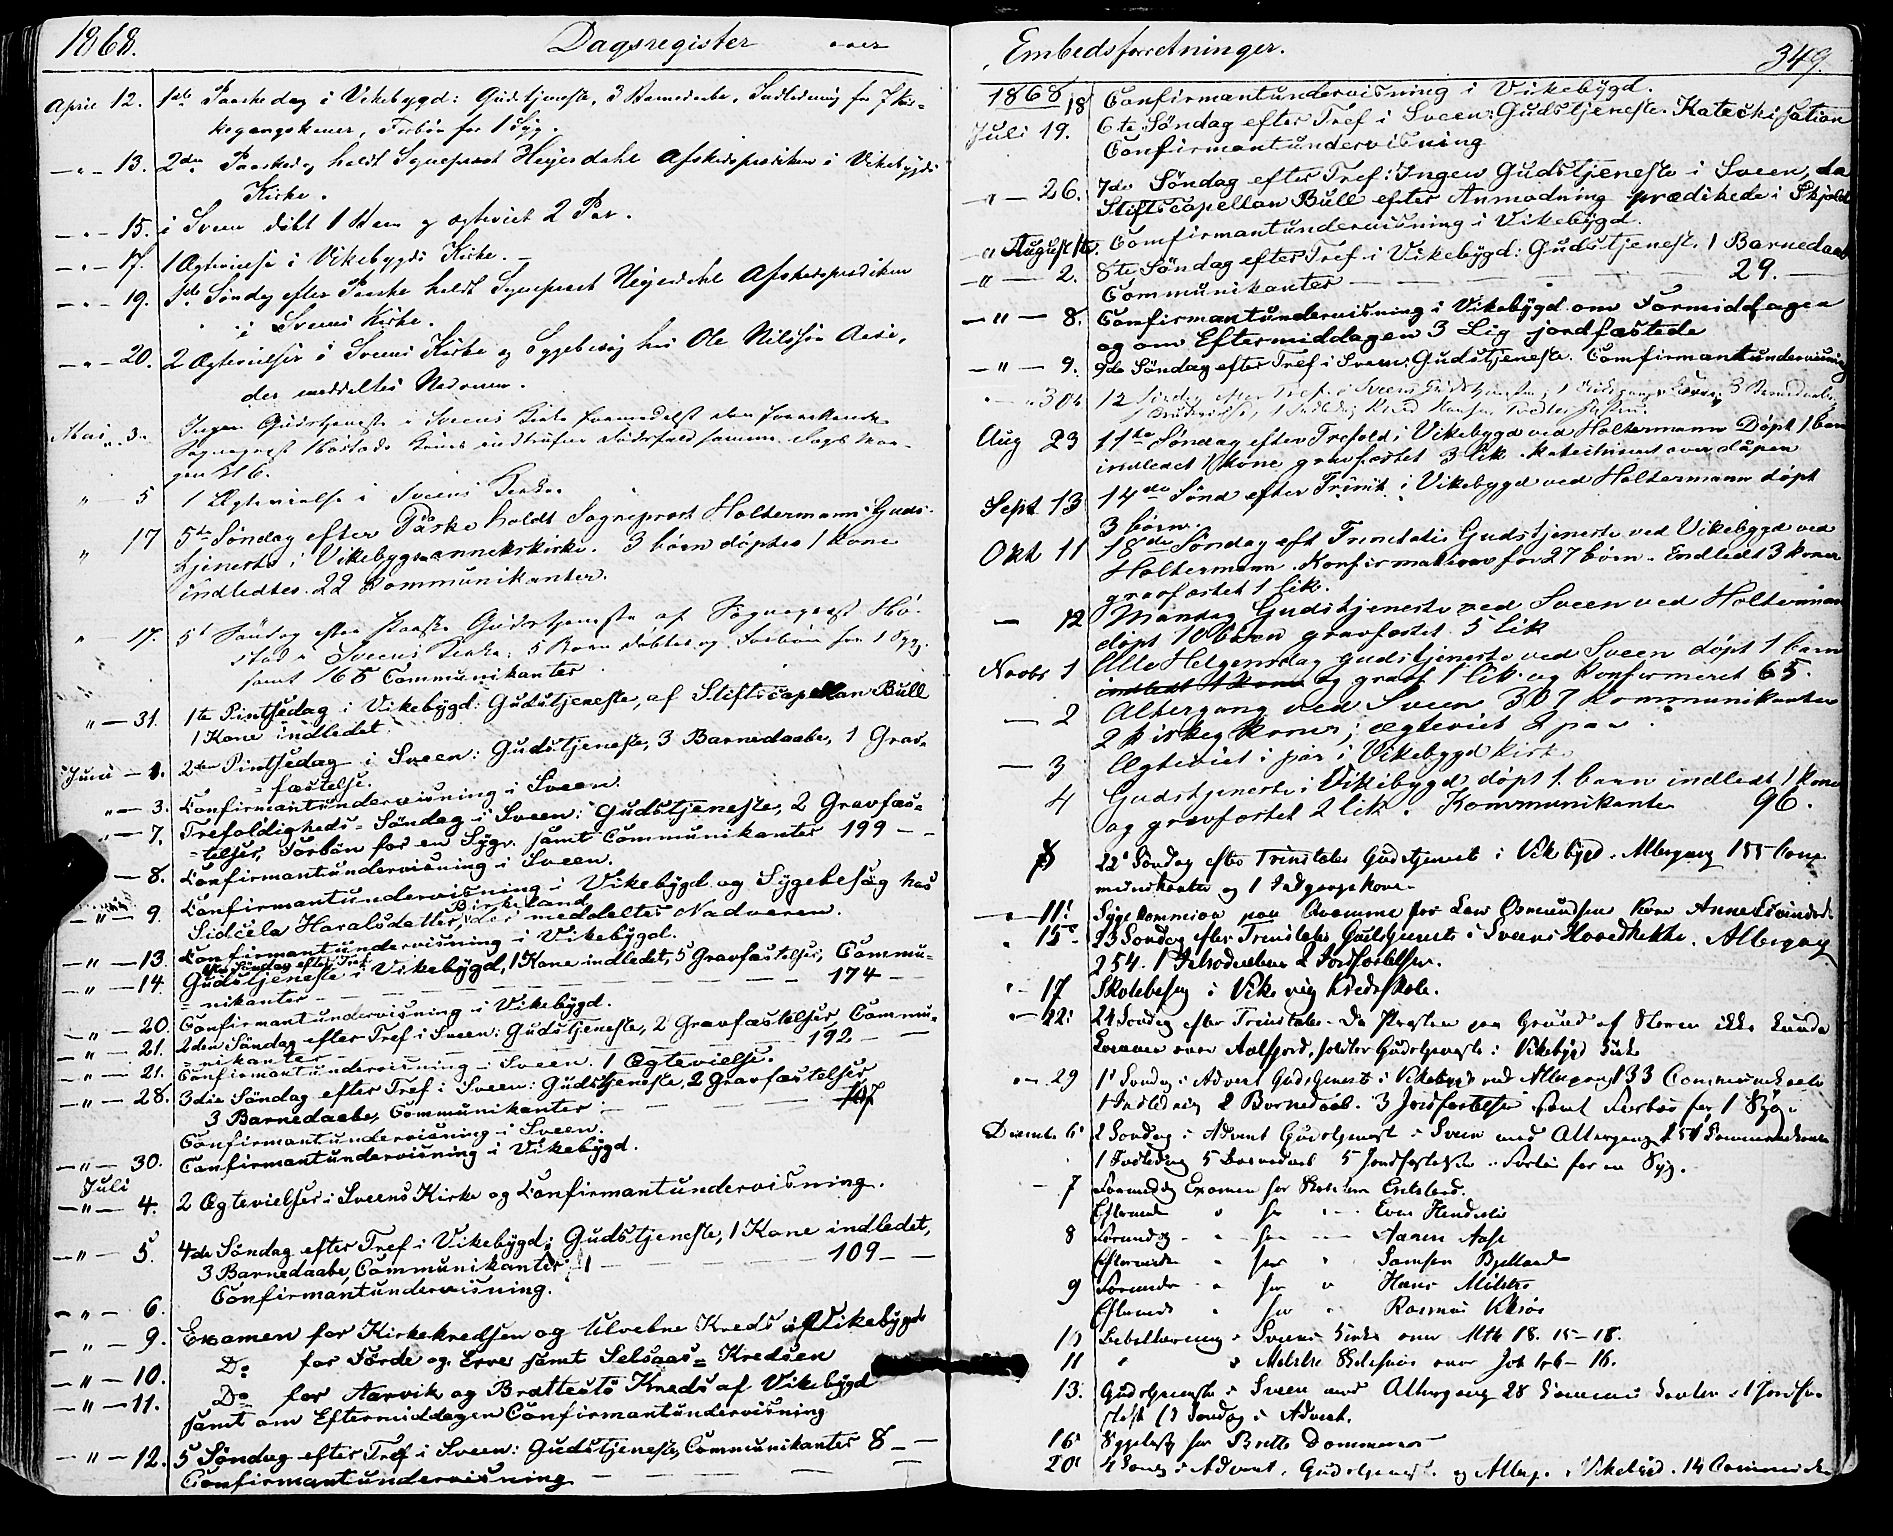 1868. Dagsregister over
April 12. 1ste Paaskedag i Vikebygd: Gudstjeneste, 3 Barnedaabe, Indledning for 7 Kir-
kegangskoner, Forbøn for 1 Syg.
— " — 13. 2den Paaskedag holdt Sognepræst Heyerdahl Afskedsprædiken i Vikebygds
Kirke.
— " — 15. i Sveen døbt 1 Barn og ægteviet 2 Par.
— " — 17. 1 Ægtevielse i Vikebygds Kirke. —
— " — 19. 1ste Søndag efter Paaske holdt Sognepræst Heyerdahl Afskedsprædiken
i Sveens Kirke.
— " — 20. 2 Ægtevielser i Sveens Kirke og Sygebesøg hos Ole Nilsson
der meddeltes Nadveren.
Mai " 3. Ingen Gudstjeneste i Sveens Kirke formedelst
Sognepræst samme Dags Mor-
gen Kl 6.
" — 5 1 Ægtevielse i Sveens Kirke.
" 17 5te Søndag efter Påske holdt Sogneprest Holtermann Guds-
tjeneste i Vikebygs annekskirke. 3 børn døptes 1 kone
indledtes. 22 Kommunikanter.
" — 17. 5t Søndag efter Paaske Gudstjeneste af Sognepræst Hø-
stad i Sveens Kirke; 5 Børn døbtes og Forbøn for 1 Syg,
samt 165 Communikanter
" — 31. 1te Pintsedag i Vikebygd: Gudstjeneste, af Stiftscapellan Bull
1 Kone indledet.
Juni — 1. 2den Pintsedag i Sveen: Gudstjeneste, 3 Barnedaabe, 1 Grav-
= fæstelse.
" — 3. Confirmantundervisning i Sveen.
" — 7. Trefoldigheds-Søndag i Sveen: Gudstjeneste, 2 Gravfæs-
-telser, Forbøn for en Syg, samt Communikanter 199 — -
— 8. Confirmantundervisning i Sveen.
— " — 9. Confirmantundervisning i Vikebygd og Sygebesøg hos
Birkeland
Sidcela Haralsdatter, der meddeltes Nadveren.
— " — 13. Confirmantundervisning i Vikebygd.
1ste Søndag efter Tref
— " — 14. Gudstjeneste i Vikebygd, 1 Kone indledet, 5 Gravfæstelser, Commu-
-nikanter — — — — — — — — 174 —
— " — 20. Confirmantundervisning i Vikebygd.
— " — 21. 2den Søndag efter Tref i Sveen: Gudstjeneste, 2 Gravfæstelser, Commu-
-nikanter — — — — — — — 192 —
— " — 21. Confirmantundervisning i Sveen. 1 Ægtevielse.
— " — 28. 3die Søndag efter Tref i Sveen: Gudstjeneste, 2 Gravfæstelser
3 Barnedaabe, Communikanter: — — — — 107
Confirmantundervisning i Sveen.
— " — 30. Confirmantundervisning i Vikebygd.
Juli
— " — 4. 2 Ægtevielser i Sveens Kirke og Confirmantundervisning.
— " — 5. 4de Søndag efter Tref i Vikebygd; Gudstjeneste, 1 Kone indledet,
3 Barnedaabe, Communikanter: — — — — 109 — —
Confirmantundervisning.
— " — 6.
— " — 9. Examen for Kirkekredsen og Ulvebne Kreds af Vikebygd
— " — 10. Do for Førde og Erve samt Selsaas = Kredsen
— " — 11. Do for Aarvik og Brattestø Kreds af Vikebygd
samt om Eftermiddagen Confirmantundervisning
— " — 12. 5 Søndag efter Tref i Sveen: Gudstjeneste, Communikanter 8 — —
Confirmantundervisning — — — —
Embedsforretninger. 349.
1868 18 Confirmantundervisning i Vikebygd.
Juli 19. 6te Søndag efter Tref i Sveen: Gudstjeneste. Katechisation
Confirmantundervisning
" — 26. 7de Søndag efter Tref: Ingen Gudstjeneste i Sveen, da
Stiftscapellan Bull efter Anmodning prædikede i Skjold
" August 1te. Confirmantundervisning i Vikebygd.
— " — 2. 8te Søndag efter Tref i Vikebygd: Gudstjeneste 1 Barnedaab
Communikanter — — — — — 29. —
— " — 8. Confirmantundervisning i Vikebygd om Formiddagen
og om Eftermiddagen 3 Lig jordfæstede
— " — 9. 9de Søndag efter Tref i Sveen: Gudstjeneste. Confirmantundervisning
— " 30te 12 Søndag efter Tref. i Sveen Gudstjeneste, 1 3 Barnedaabe,
Aug 23 11te Søndag efter Trefold i Vikebygd ved Holtermann Døpt 1 barn
indledet 1 kone gravfæstet 3 lik. Katechiseret over dåpen
Sept 13 14de Sønd efter Trinit i Vikebygd ved Holtermann døpt
3 børn.
Okt 11 18de Søndag eft Trinitatis Gudstjeneste ved Vikebygd ved
Holtermann. Konfirmation for 27 børn. Indledt 3 koner
gravfæstet 1 lik.
— 12 Mandag Gudstjeneste ved Sveen ved Holtermann
døpt 10 børn gravfæstet 5 lik
Novbr 1 Alle Helgensdag gudstjeneste ved Sveen døpt 1 barn
indledt 1 kone og gravf 1 lik og konfirmeret 65.
— 2 Altergang ved Sveen 307 kommunikanter
2 kirkeg koner; ægteviet 2 par
— 3 Ægteviet i par i Vikebygd kirk
4 Gudstjeneste i Vikebygd døpt 1. barn indledt 1 kone
og gravfæstet 2 lik. Kommunikanter 96.
8 22' Søndag efter Trinitatis Gudstjenest i Vikebygd. Altergang 155 Com-
munikanter og 1 Indgangskone.
— " — 11' Sygekommion paa Qvamme for Lars Osmundsen Kone Anne Eivinds-
" 15' 23 Søndag efter Trinitatis Gudstjeneste i Sveens Hovedkirke. Altergang
254. 1 Introduction 2 Jordfæstelser.
" — 17 Skolebesøg i Vikevig Kredsskole.
" — 22: 24 Søndag efter Trinitatis. Da Præsten paa Grund af Storm ikke kunde
komme over Aalfjord, holdtes Gudstjeneste i Vikebygd Kirke
" — 29 1' Søndag i Advent Gudstjenest i Vikebygd med Altergang 133 Communikanter
1 Indledning 2 Barnedaab. 3 Jordfæstelser samt Forbøn for 1 Syg.
Decembr 6' 2 Søndag i Advent Gudstjenest i Sveen med Altergang 251 Communikanter
1 Indledning 5 Barnedaab 5 Jordfæstelser. Forbøn for en Syg.
— 7 Formiddag Examen for Skoleholder
Efterm " for " —
8 Formiddag — " for — Aase
Eftermidd " for " Samson Bjelland
9 Formidd " for " Hans
Efterm " for " Rasmus
10 Bibellæsning i Sveens Kirke over Mth 18. 15–18.
11 " " over Joh 1–16.
13. Gudstjeneste i Sveen med Altergang 28 Communikanter 1 Jordfæ-
stelse (3 Søndag i Advent.
16' Sygebesøg for Brette Dommersnes
20' 4 Søndag i Advent. Gudstjeneste og Alterg. i Vikebygd. 14 Communik